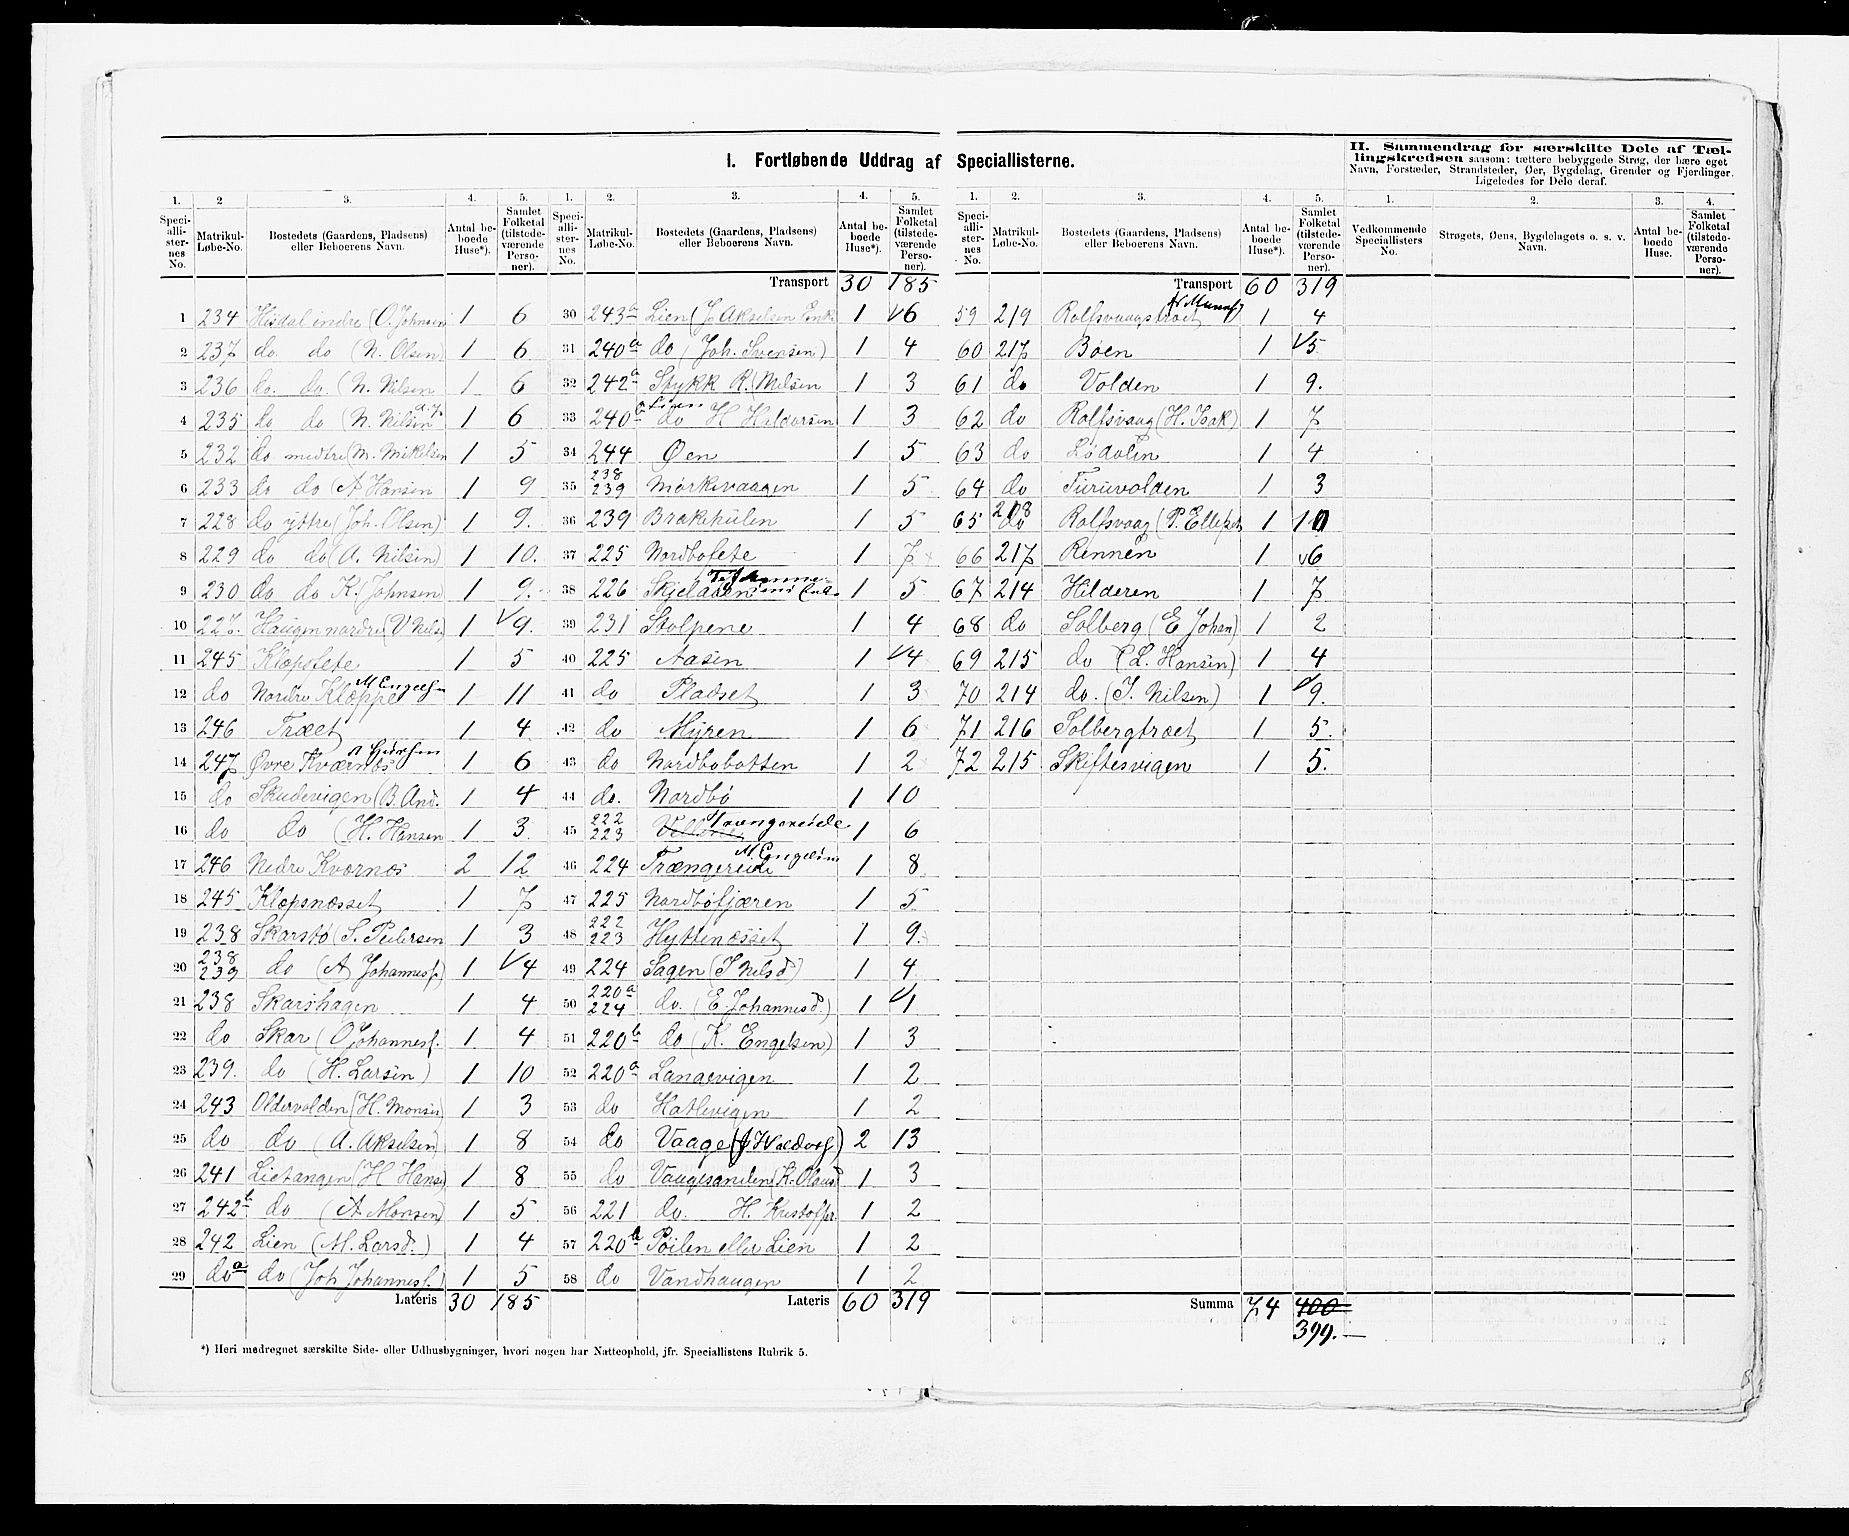 I. Fortløbende Uddrag af Speciallisterne.
1. Speciallisternes No. | 2 Matrikul-Løbe-No. | 3. Bostedets (Gaardens, Pladsens) eller Beboerens Navn. | 4. Antal beboede Huse*). | 5. Samlet Folketal (tilstedeværende Personer).
1 234 Hisdal indre (O. Johnsen 1 6
2 237 do. do (N. Olsen) 1 6
3 236 do. do. (N. Nilsen 1 6
4 235 do do (N. Nilsen d. y. 1 6
5 232 do medtre (M. Mikelsen 1 5
6 233 do do (A Hansen 1 9
7 228 do yttre (Joh. Olsen) 1 9.
8 229 do do (A. Nilsen) 1 10.
9 230 do do K. Johnsen 1 9.
10 227. Haugen nordre (V Nilse 1 9.
11 245 Klopstete 1 5
12 do Nordre Kloppe M Engelsen 1 11
13 246 Træet 1 4
14 247 Øvre Kværnøs 1 6
15 do Skudevigen (B. And. 1 4
16 do do (H. Hansen 1 3
17 246 Nedre Kvornøs 2 12
18 245 Klopsnæsset 1 7
19 238 Skarstø (S. Pedersen 1 3
20 238 239 do (A Johannesf.) 1 4
21 238 Skarshagen 1 4
22 do Skar (O Johannesf. 1 4
23 239. do (H. Larsen) 1 10
24 243 Oldervolden (H. Monsen) 1 3
25 do do (A. Akselsen) 1 8
26 241 Lietangen (H Hanse) 1 8
27 242b do (A Monsen) 1 5
28 242 Lien (M. Larsd.) 1 4
29 do a do (Joh Johannesf.) 1 5
Lateris 30 185
*) Heri medregnet særskilte Side- eller Udhusbygninger, hvori nogen har Natteophold, jfr. Speciallistens Rubrik 5.
1. Speciallisternes No. | 2. Matrikul-Løbe-No. | 3. Bostedets (Gaardens, Pladsens) eller Beboerens Navn. | 4. Antal beboede Huse*). | 5. Samlet Folketal (tilstedeværende Personer).
Transport 30 185
30 243b Lien (J. Akselsen Enke 1 6
31 240a do (Joh. Svensen) 1 4
32 242a Stykk R. (Nilsen 1 3
33 240b do H Haldorsen 1 3
34 244 Øen 1 5
35 238 239 Mørkevaagen 1 5
36 239 Brakehulen 1 5
37 225 Nordbøfete 1 7
38 226 Skjelaaen 1 5
39 231 Stolpene 1 4
40 225 Aasen 1 4
41 do Pladset 1 3
42 do Myren 1 6
43 do Nordbøbotten 1 2
44 do. Nordbø 1 10
45 222 223 Trængereide 1 6
46 224 Trængereide M. Engelsen 1 8
47 225 Nordbøfjæren 1 5
48 222 223 Hyttenæsset 1 9.
49 224 Sagen (S Nilsd) 1 4
50 220a 224 do. (E. Johannesd.) 1 1
51 220b do (K. Engelsen) 1 3
52 220a Langevigen 1 2
53 do Hatlevigen 1 2
54 do Vaage (J Haldorf.) 2 13
55 do Vaagesanden (K. Olausd 1 3
56 221 do. H. Kristoffer. 1 2
57 220b Pøilen eller Lien 1 2
58 do Vandhaugen 1 2
Lateris 60 319
1. Speciallisternes No. | 2. Matrikul-Løbe-No. | 3. Bostedets (Gaardens, Pladsens) eller Beboerens Navn. | 4. Antal beboede Huse*). | 5. Samlet Folketal (tilstedeværende Personer).
Transport 60 319
59 219 Rolfsvaagstræet 1 4
60 217 Bøen 1 5
61 do Volden 1 9.
62 do Rolfsvaag (H. Isak) 1 7
63 do Lødølin 1 4
64 do Furuvolden 1 3
65 218 do Rolfsvaag (P. Ellefsen 1 10
66 217 Rennen 1 6
67 214 Hilderen 1 7
68 do Solberg (E Johan) 1 2
69 215 do (L. Hansen) 1 4
70 214 do. (I. Nilsen) 1 9.
71 216 Solbergtræet 1 5.
72 215 Skiftesvigen 1 5.
Summa 74 400
399.
II. Sammendrag for særskilte Dele af Tællingskredsen saasom: tættere bebyggede Strøg, der bære eget Navn, Forstæder, Strandsteder, Øer, Bygdelag, Grender og Fjerdinger. Ligeledes for Dele deraf.
1. Vedkommende Speciallisters No. | 2. Strøgets, Øens, Bygdelagets o. s. v. Navn. | 3. Antal beboede Huse. | 4. Samlet Folketal (tilstedeværende Personer).